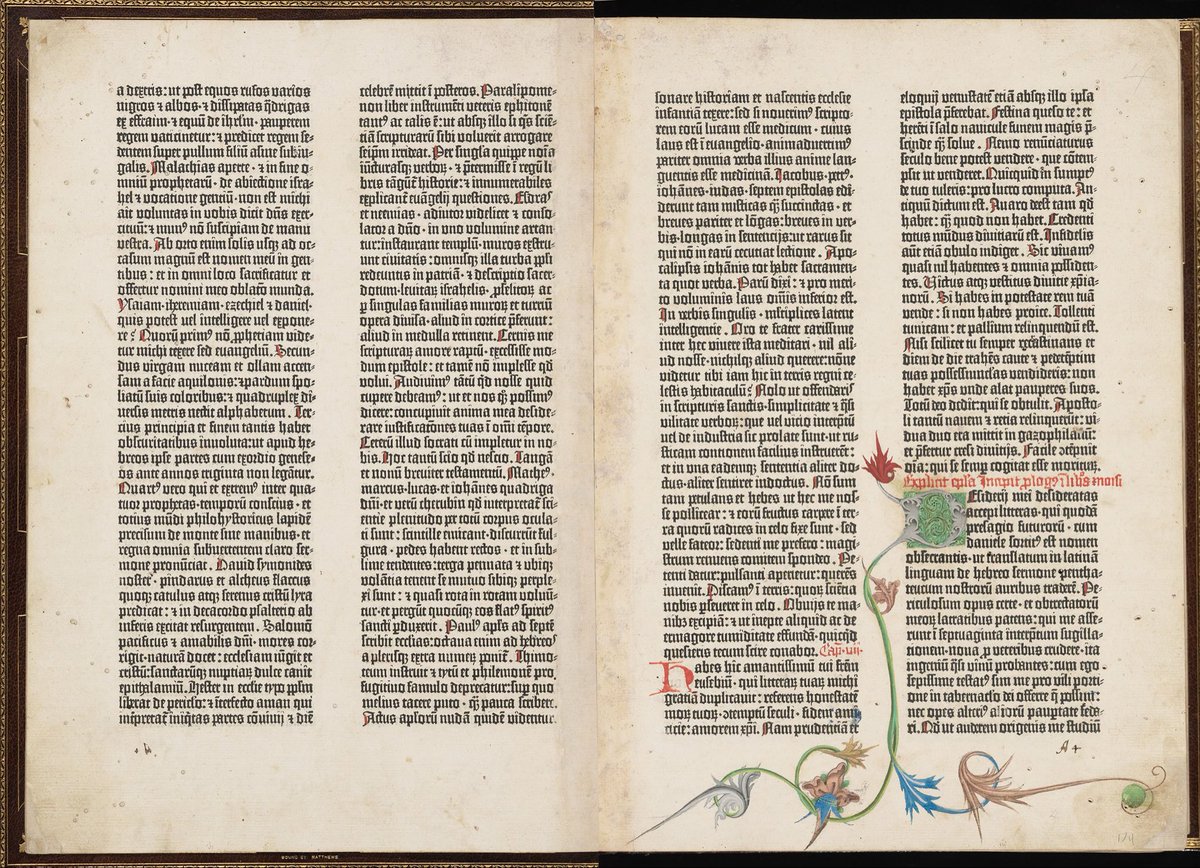 a dextris: ut post equos rufos varios
nigros ⁊ albos · ⁊ dissipatas q̄drigas
ex effraim · ⁊ equū de ihrlm · pauperem
regem vaticinetur: ⁊ predicet regem se-
dentem super pullum filiū asine subiu-
galis. Malachias aperte · ⁊ in fine o-
mniū prophetarū · de abiectione isra-
hel ⁊ vocatione gentiū · non est michi
ait voluntas in vobis dicit dn̄s exer-
cituū: ⁊ munᵒ nō suscipiam de manu
vestra. Ab ortu enim solis usq; ad oc-
casum magnū est nomen meū in gen-
tibus: et in omni loco sacrificatur et
offertur nomini meo oblatō munda.
Ysaiam · iheremiam · ezechiel ⁊ daniel·
quis potest vel intelligere vel expone-
re? Quorū primᵒ nō ꝓphetiam vide-
tur michi texere sed euangeliū. Secun-
dus virgam nuceam et ollam accen-
sam a facie aquilonis: ⁊ pardum spo-
liatū suis coloribus: ⁊ quadruplex di-
versis metris nectit alphabetum. Ter-
cius principia et finem tantis habet
obscuritatibus involuta: ut apud he-
breos ipse partes cum exordio genese-
os ante annos triginta non legātur.
Quartᵒ vero qui et extremᵒ inter qua-
tuor prophetas · temporū conscius · et
totius mūdi philohystoricus lapidē
precisum de monte sine manibus · et
regna omnia subvertentem claro ser-
mone pronūciat. David symonides
noster · pindarus et alcheus · flaccus
quoq; catulus atq; serenus cristū lyra
predicat: ⁊ in decacordo psalterio ab
inferis excitat resurgentem. Salomō
pacificus ⁊ amabilis dn̄i · mores cor-
rigit · naturā docet: ecclesiam iūgit et
cristū: sanctarūq; nuptiarū dulce canit
epithalamiū. Hester in ecclesie typo ppl̄m
liberat de periclo: ⁊ interfecto aman qui
interpretat iniq̄tas · partes cōviuij ⁊ diē
celebrē mittit ī posteros. Paralipome-
non liber instrumēti veteris ephitomē
tantᵒ ac talis ē: ut absq; illo si q̄s sciē-
tiā scripturarū sibi voluerit arrogare
seip̄m irrideat. Per singl̄a quippe noīa
iūcturasq; verboꝝ · ⁊ p̄termisse ī regū li-
bris tāgunt̄ historie: ⁊ innumerabiles
explicant̄ euāgelij questiones. Esdras
et neemias · adiutor videlicet ⁊ conso-
lator a dn̄o · in uno volumine artan-
tur: instaurant templū · muros exstru-
unt civitatis: omnisq; illa turba ppl̄i
redeuntis in patriā · ⁊ descriptio sacer-
dotum · levitaꝝ israhelis · ꝓselitoꝝ · ac
ꝑ singulas familias muroꝝ et turriū
opera divisa · aliud in cortice p̄ferunt:
aliud in medulla retinent. Cernis me
scripturaꝝ amore raptū · excessisse mo-
dum epistole: et tamē nō implesse qd̄
volui. Audiuimᵒ tātū qd̄ nosse quid
cupere debeamᵒ: ut et nos q̄q; possimᵒ
dicere: concupiuit anima mea deside-
rare iustificatōnes tuas ī om̄i tēpore.
Ceterū illud socrati cū impletur in no-
bis. Hoc tantū scio qd̄ nescio. Tangā
et novū breviter testamentū. Matheᵒ
marcus · lucas · et iohānes quadriga
dn̄i: et verū cherubin qd̄ interpretat̄ sci-
entie plenitudo · per totū corpus ocula-
ti sunt: scintille emicant · discurrūt ful-
gura · pedes habent rectos · et in sub-
lime tendentes: terga pennata ⁊ ubiq;
volātia · tenent se mutuo sibiq; perple-
xi sunt: ⁊ quasi rota in rota voluū-
tur · et pergūt quocūq; eos flatᵒ spiritᵒ
sancti ꝑduxerit. Paulᵒ apl̄s ad septē
scribit ecclīas: octava enim ad hebreos
a plerisq; extra numeꝝ ponit̄. Thimo-
teum instruit ⁊ tytū et philemonē pro
fugitiuo famulo deprecatur: sup̄ quo
melius tacere puto · q̄ pauca scribere.
Actus apl̄orū nudā quidē videntur
sonare historiam et nascentis ecclesie
infantiā texere: sed si noverimᵒ scripto-
rem eorū lucam esse medicum · cuius
laus est ī euangelio · animaduertimᵒ
pariter omnia verba illius anime lan-
guentis esse medicinā. Iacobus · petrᵒ
iohānes · iudas · septem epistolas edi-
derunt tam misticas q̄ succinctas · et
breves pariter et lōgas: breves in ver-
bis · longas in sentencijs: ut rarus sit
qui nō in earū cecutiat lectione. Apo-
calipsis iohānis tot habet sacramen-
ta quot verba. Parū dixi: ⁊ pro meri-
to voluminis laus om̄is inferior est.
In verbis singulis · mltiplices latent
intelligentie. Oro te frater carissime
inter hec vivere · ista meditari · nil ali-
ud nosse · nichilq; aliud querere: nōne
videtur tibi iam hic in terris regni ce-
lestis habitaculū? Nolo ut offendaris
in scripturis sanctis · simplicitate ⁊ q̄si
vilitate verboꝝ: que vel vicio interp̄tū
vel de industria sic prolate sunt · ut ru-
sticam contionem facilius instruerēt:
et in una eademq; sententia aliter do-
ctus · aliter sentiret indoctus. Nō sum
tam petulans et hebes ut hec me nos-
se pollicear: ⁊ eorū fructus carpere ī ter-
ra quorū radices in celo fixe sunt · sed
velle fateor: sedenti me prefero: magi-
strum renuens comitem spondeo. Pe-
tenti datur: pulsanti aperietur: querēs
invenit. Discamᵒ ī terris: quoꝝ sciētia
nobis ꝑseveret in celo. Obuijs te ma-
nibᵒ excipiā: ⁊ ut inepte aliquid ac de
ermagore tumiditate effundā · quicq̄d
quesieris tecum scire conabor. Cap. viii
Habes hic amantissimū tui fr̄em
eusebium · qui litteraꝝ tuaꝝ michi
gratiā duplicauit: referens honestatē
moꝝ tuoꝝ · ꝯtemptū seculi · fidem ami-
cicie: amorem xp̄i. Nam prudentiā et
eloquij venustatē etiā absq; illo ipsa
epistola p̄ferebat. Festina queso te: et
herēti ī salo nauicule funem magis p̄-
scinde q̄ solve. Nemo renūciaturus
seculo bene potest vendere · que cōtem-
psit ut venderet. Quicquid ī sumptᵒ
de tuo tuleris: pro lucro computa. An-
tiquū dictum est. Avaro deest tam qd̄
habet: q̄ quod non habet. Credenti
totus mūdus divitiarū est. Infidelis
aut̄ etiā obulo indiget. Sic vivamᵒ
quasi nil habentes ⁊ omnia possiden-
tes. Victus atq; vestitus divitie xp̄ia-
norū. Si habes in potestate rem tuā
vende: si non habes proice. Tollenti
tunicam: et pallium relinquendū est.
Nisi scilicet tu semper ꝓcrastinans et
diem de die trahēs caute ⁊ pedetēptim
tuas possessiunclas vendideris: non
habet xp̄us unde alat pauperes suos.
Totū deo dedit: qui se obtulit. Aposto-
li tantū navem ⁊ retia relinquerūt: vi-
dua duo era mittit in gazophilaciū:
et p̄fertur cresi divitijs. Facile ꝯtēpnit
oīa: qui se semꝑ cogitat esse moriturꝝ.
Explicit epl̄a Incipit ꝓlogᵒ ī libros moisi
Desiderij mei desideratas
accepi litteras · qui quodā
presagio futurorū · cum
daniele sortitᵒ est nomen
obsecrantis · ut translatum in latinā
linguam de hebreo sermone pentha-
teucum nostrorū auribus traderē. Pe-
riculosum opus certe · et obtrectatorū
meoꝝ latratibus patens: qui me asse-
runt ī septuaginta interp̄tum sugilla-
tionem · nova ꝓ veteribus cudere · ita
ingeniū q̄si vinū probantes: cum ego
sepissime testatᵒ sim me pro virili porti-
one in tabernaclo dei offerre q̄ possim:
nec opes alteriᵒ alioꝝ paupertate feda-
ri. Qd̄ ut auderem origenis me studiū
A +
BOUND BY MATTHEWS